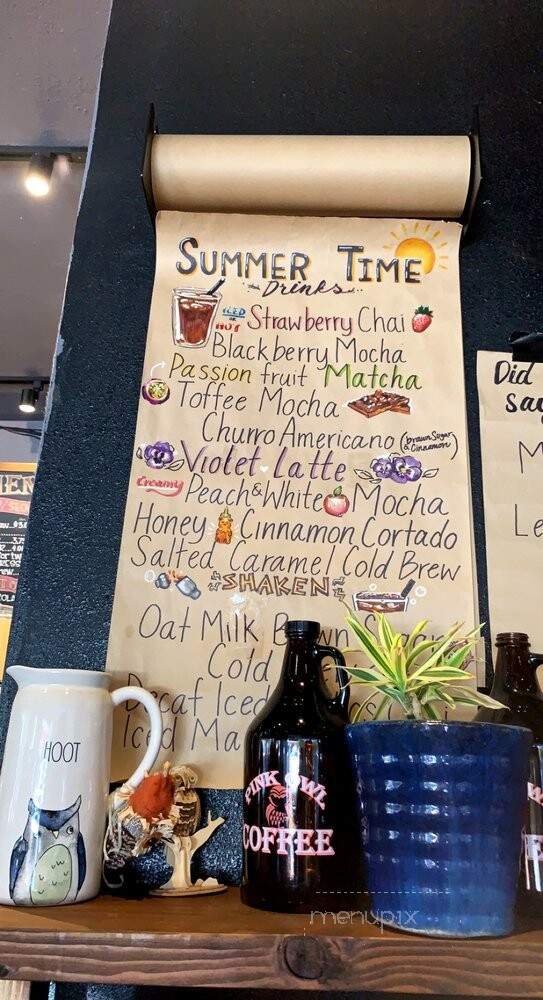 SUMMER TIME
Drinks
ICED
or
HOT
Strawberry Chai
Blackberry Mocha
Passion fruit Matcha
Toffee Mocha
Churro Americano (brown Sugar
& Cinnamon)
Violet Latte
Creamy Peach & White Mocha
Honey Cinnamon Cortado
Salted Caramel Cold Brew
SHAKEN
Oat Milk
Cold
Decaf Iced
Iced
Did
say
HOOT
PINK OWL
COFFEE
menupix